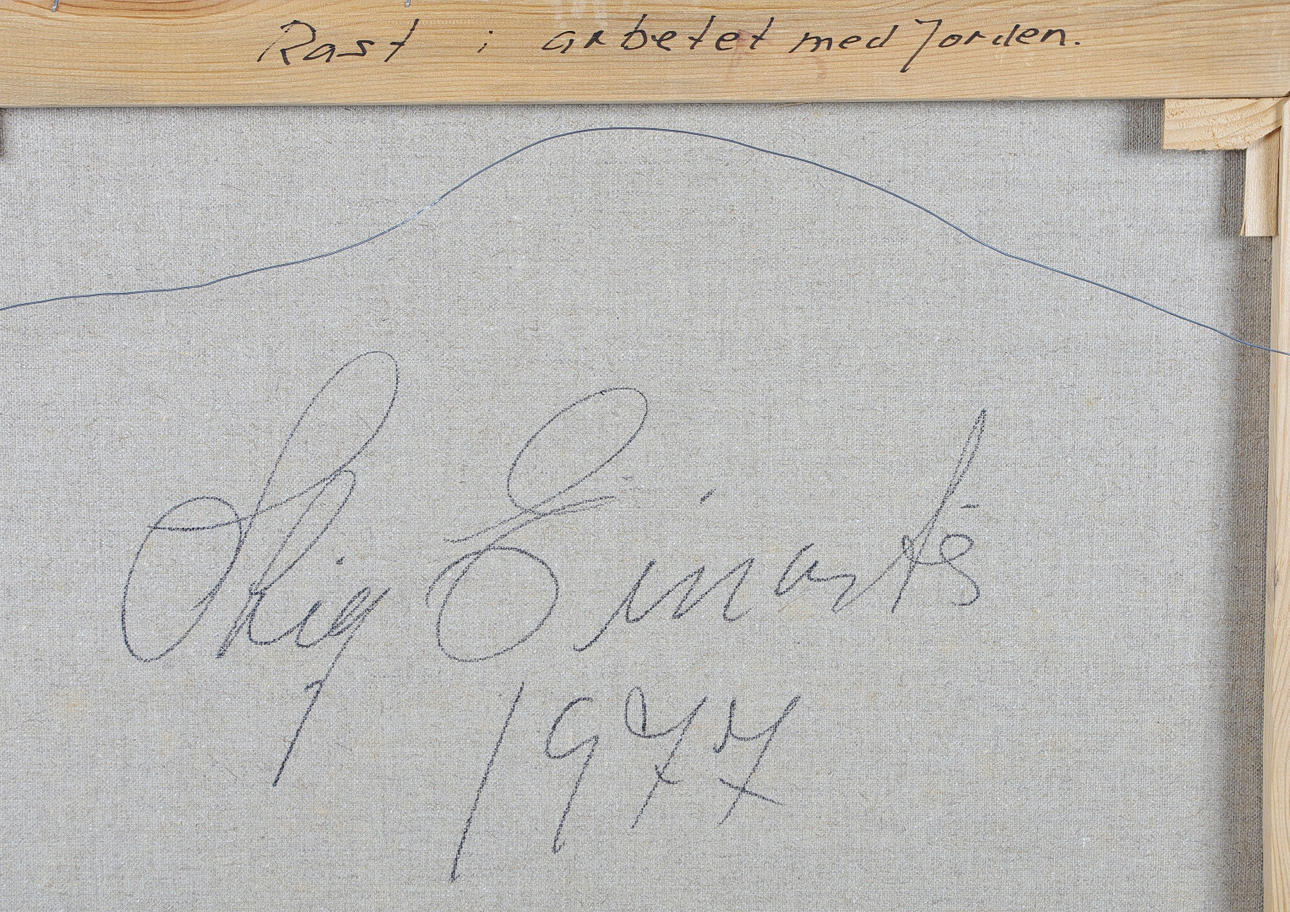 Rast i arbetet med Jorden.
Stig Einarts
1977